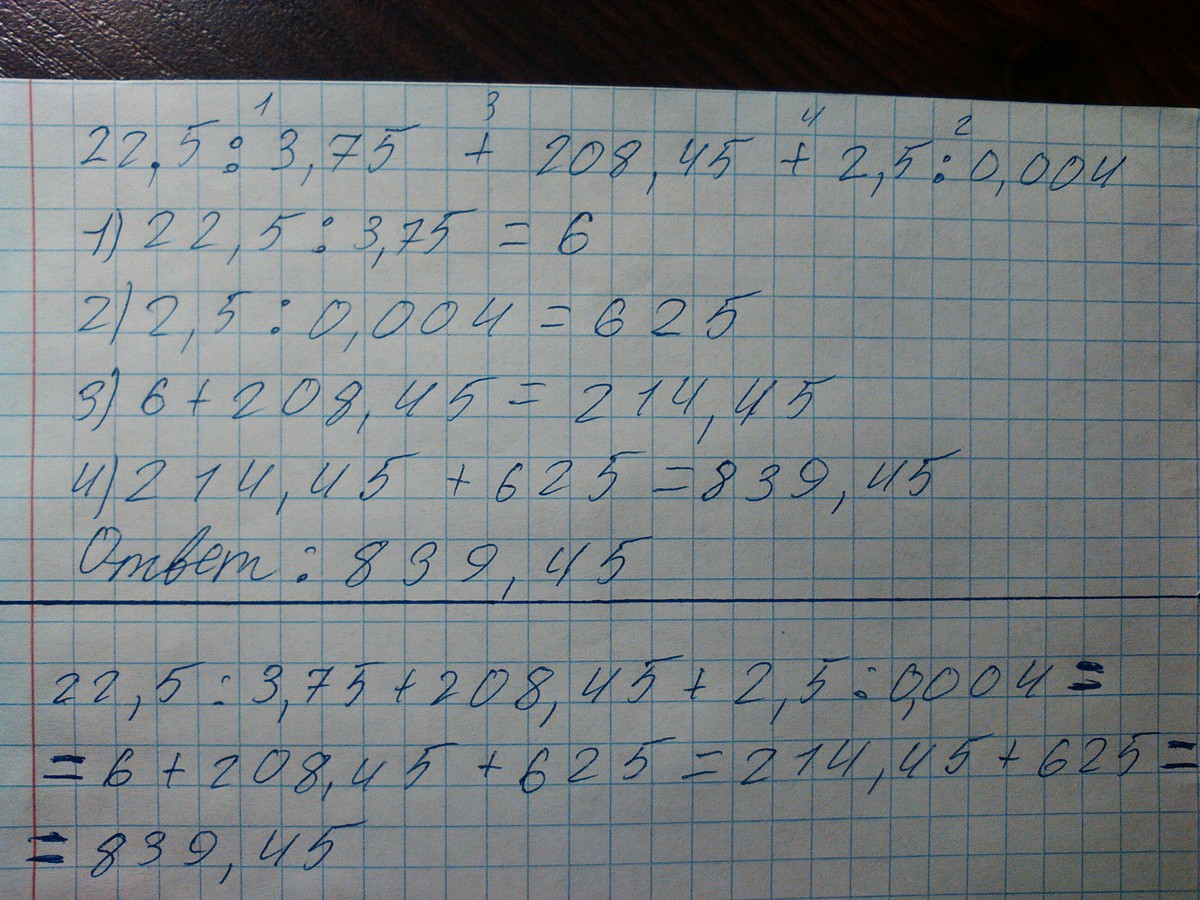 1 3 4 2
22,5 : 3,75 + 208,45 + 2,5 : 0,004
1) 22,5 : 3,75 = 6
2) 2,5 : 0,004 = 625
3) 6 + 208,45 = 214,45
4) 214,45 + 625 = 839,45
Ответ : 839,45
22,5 : 3,75 + 208,45 + 2,5 : 0,004 =
= 6 + 208,45 + 625 = 214,45 + 625 =
= 839,45